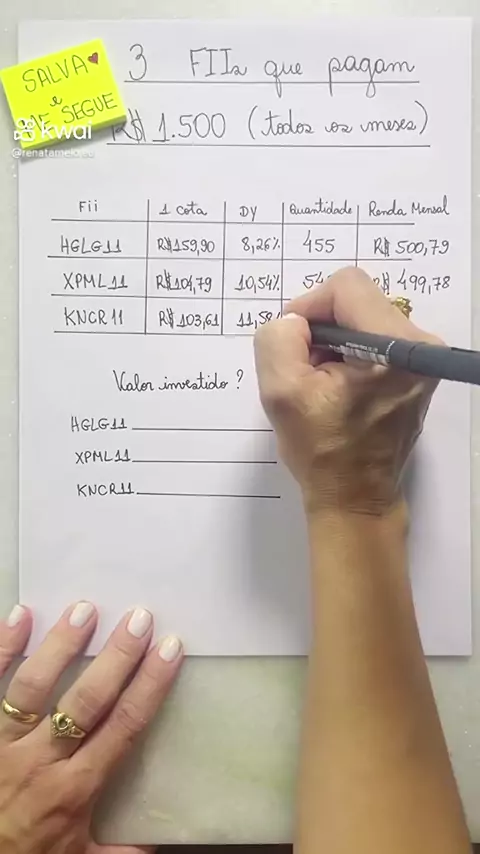 SALVA
e
ME SEGUE
kwai
3 FIIs que pagam
R$ 1.500 (todos os meses)
Fii 1 Cota DY Quantidade Renda Mensal
HGLG11 R$159,90 8,26% 455 R$ 500,79
XPML11 R$104,79 10,54% R$ 499,78
KNCR11 R$103,61 11,58%
Valor investido?
HGLG11
XPML11
KNCR11